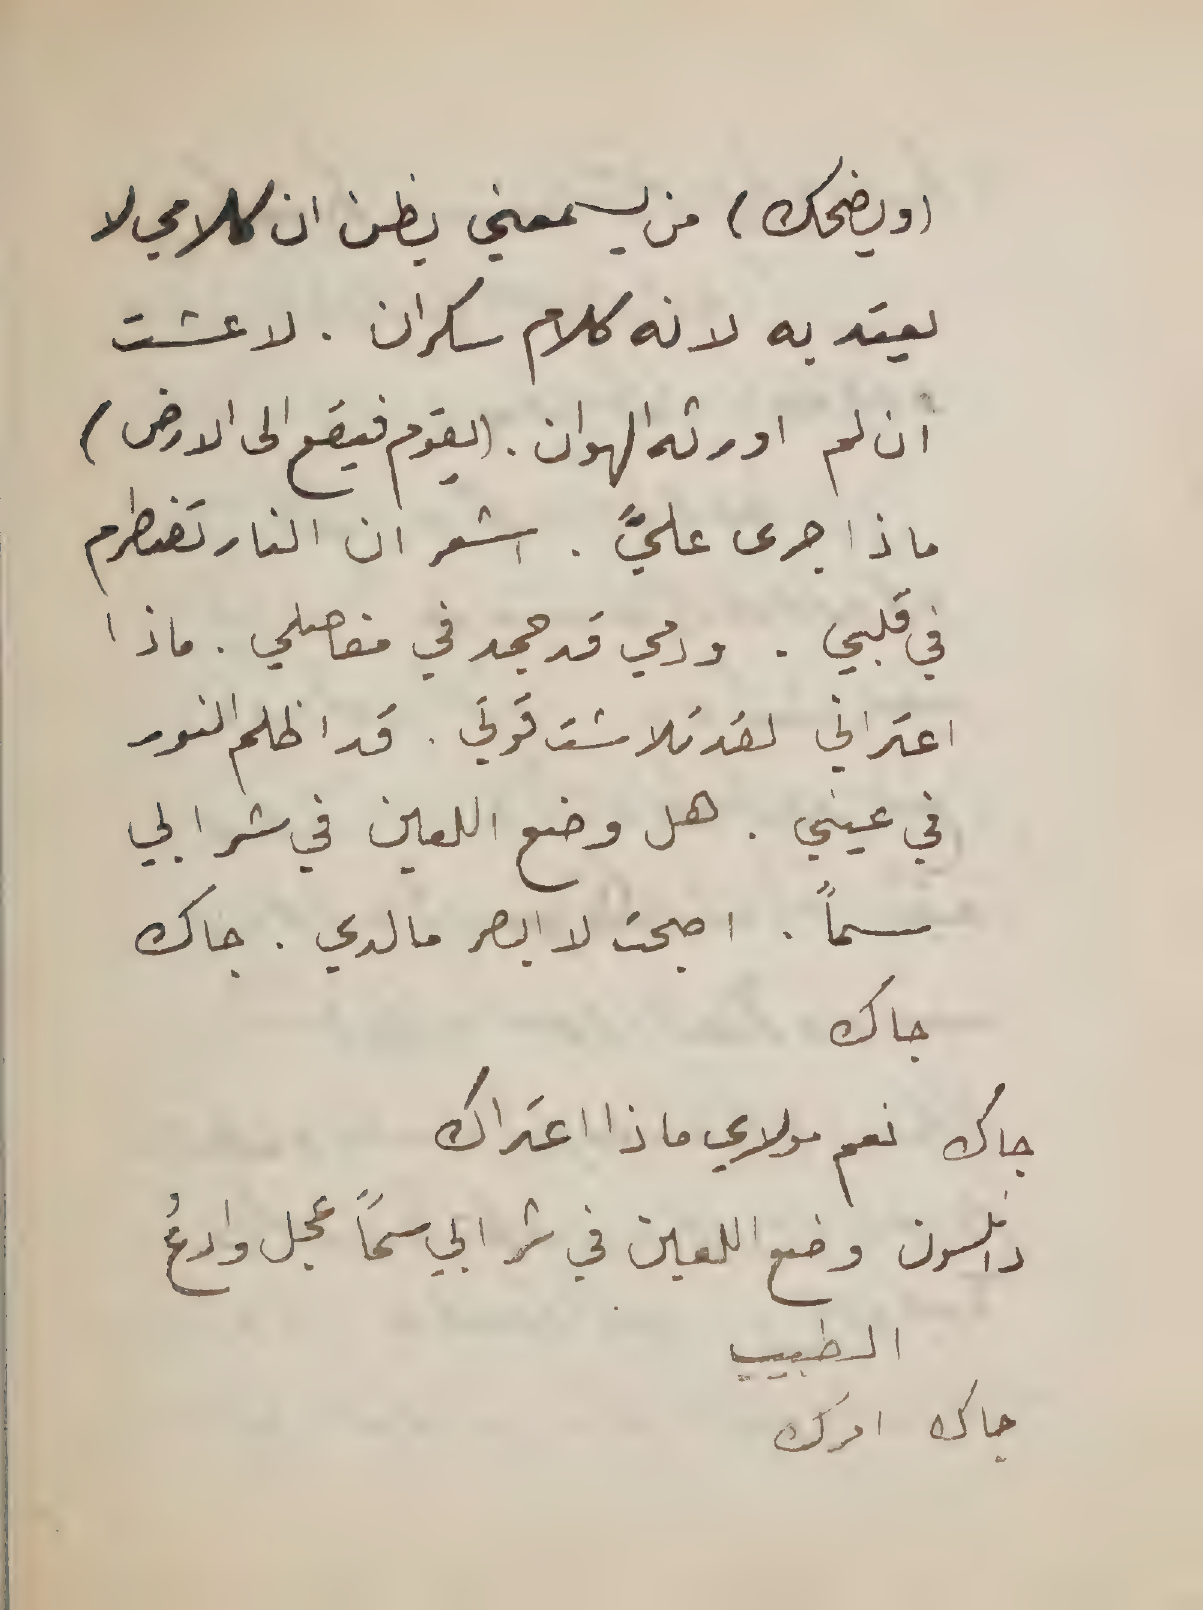 (ويضحك) من يسمعني يظن ان كلامي لا
يعتد به لانه كلام سكران . لا عشت
أن لم اورثه الهوان . (يقوم فيقع الى الارض)
ماذا جرى عليَّ . اشعر ان النار تضطرم
في قلبي . ودمي قد جمد في مفاصلي . ماذا
اعتراني لقد تلاشت قوتي . قد اظلم النور
في عيني . هل وضع اللعين في شرابي
سماً . اصبحت لا ابصر ما لدي . جاك
جاك
جاك نعم مولاي ماذا اعتراك
دانلسون وضع اللعين في شرابي سماً عجل وادعُ
الطبيب
جاك امرك